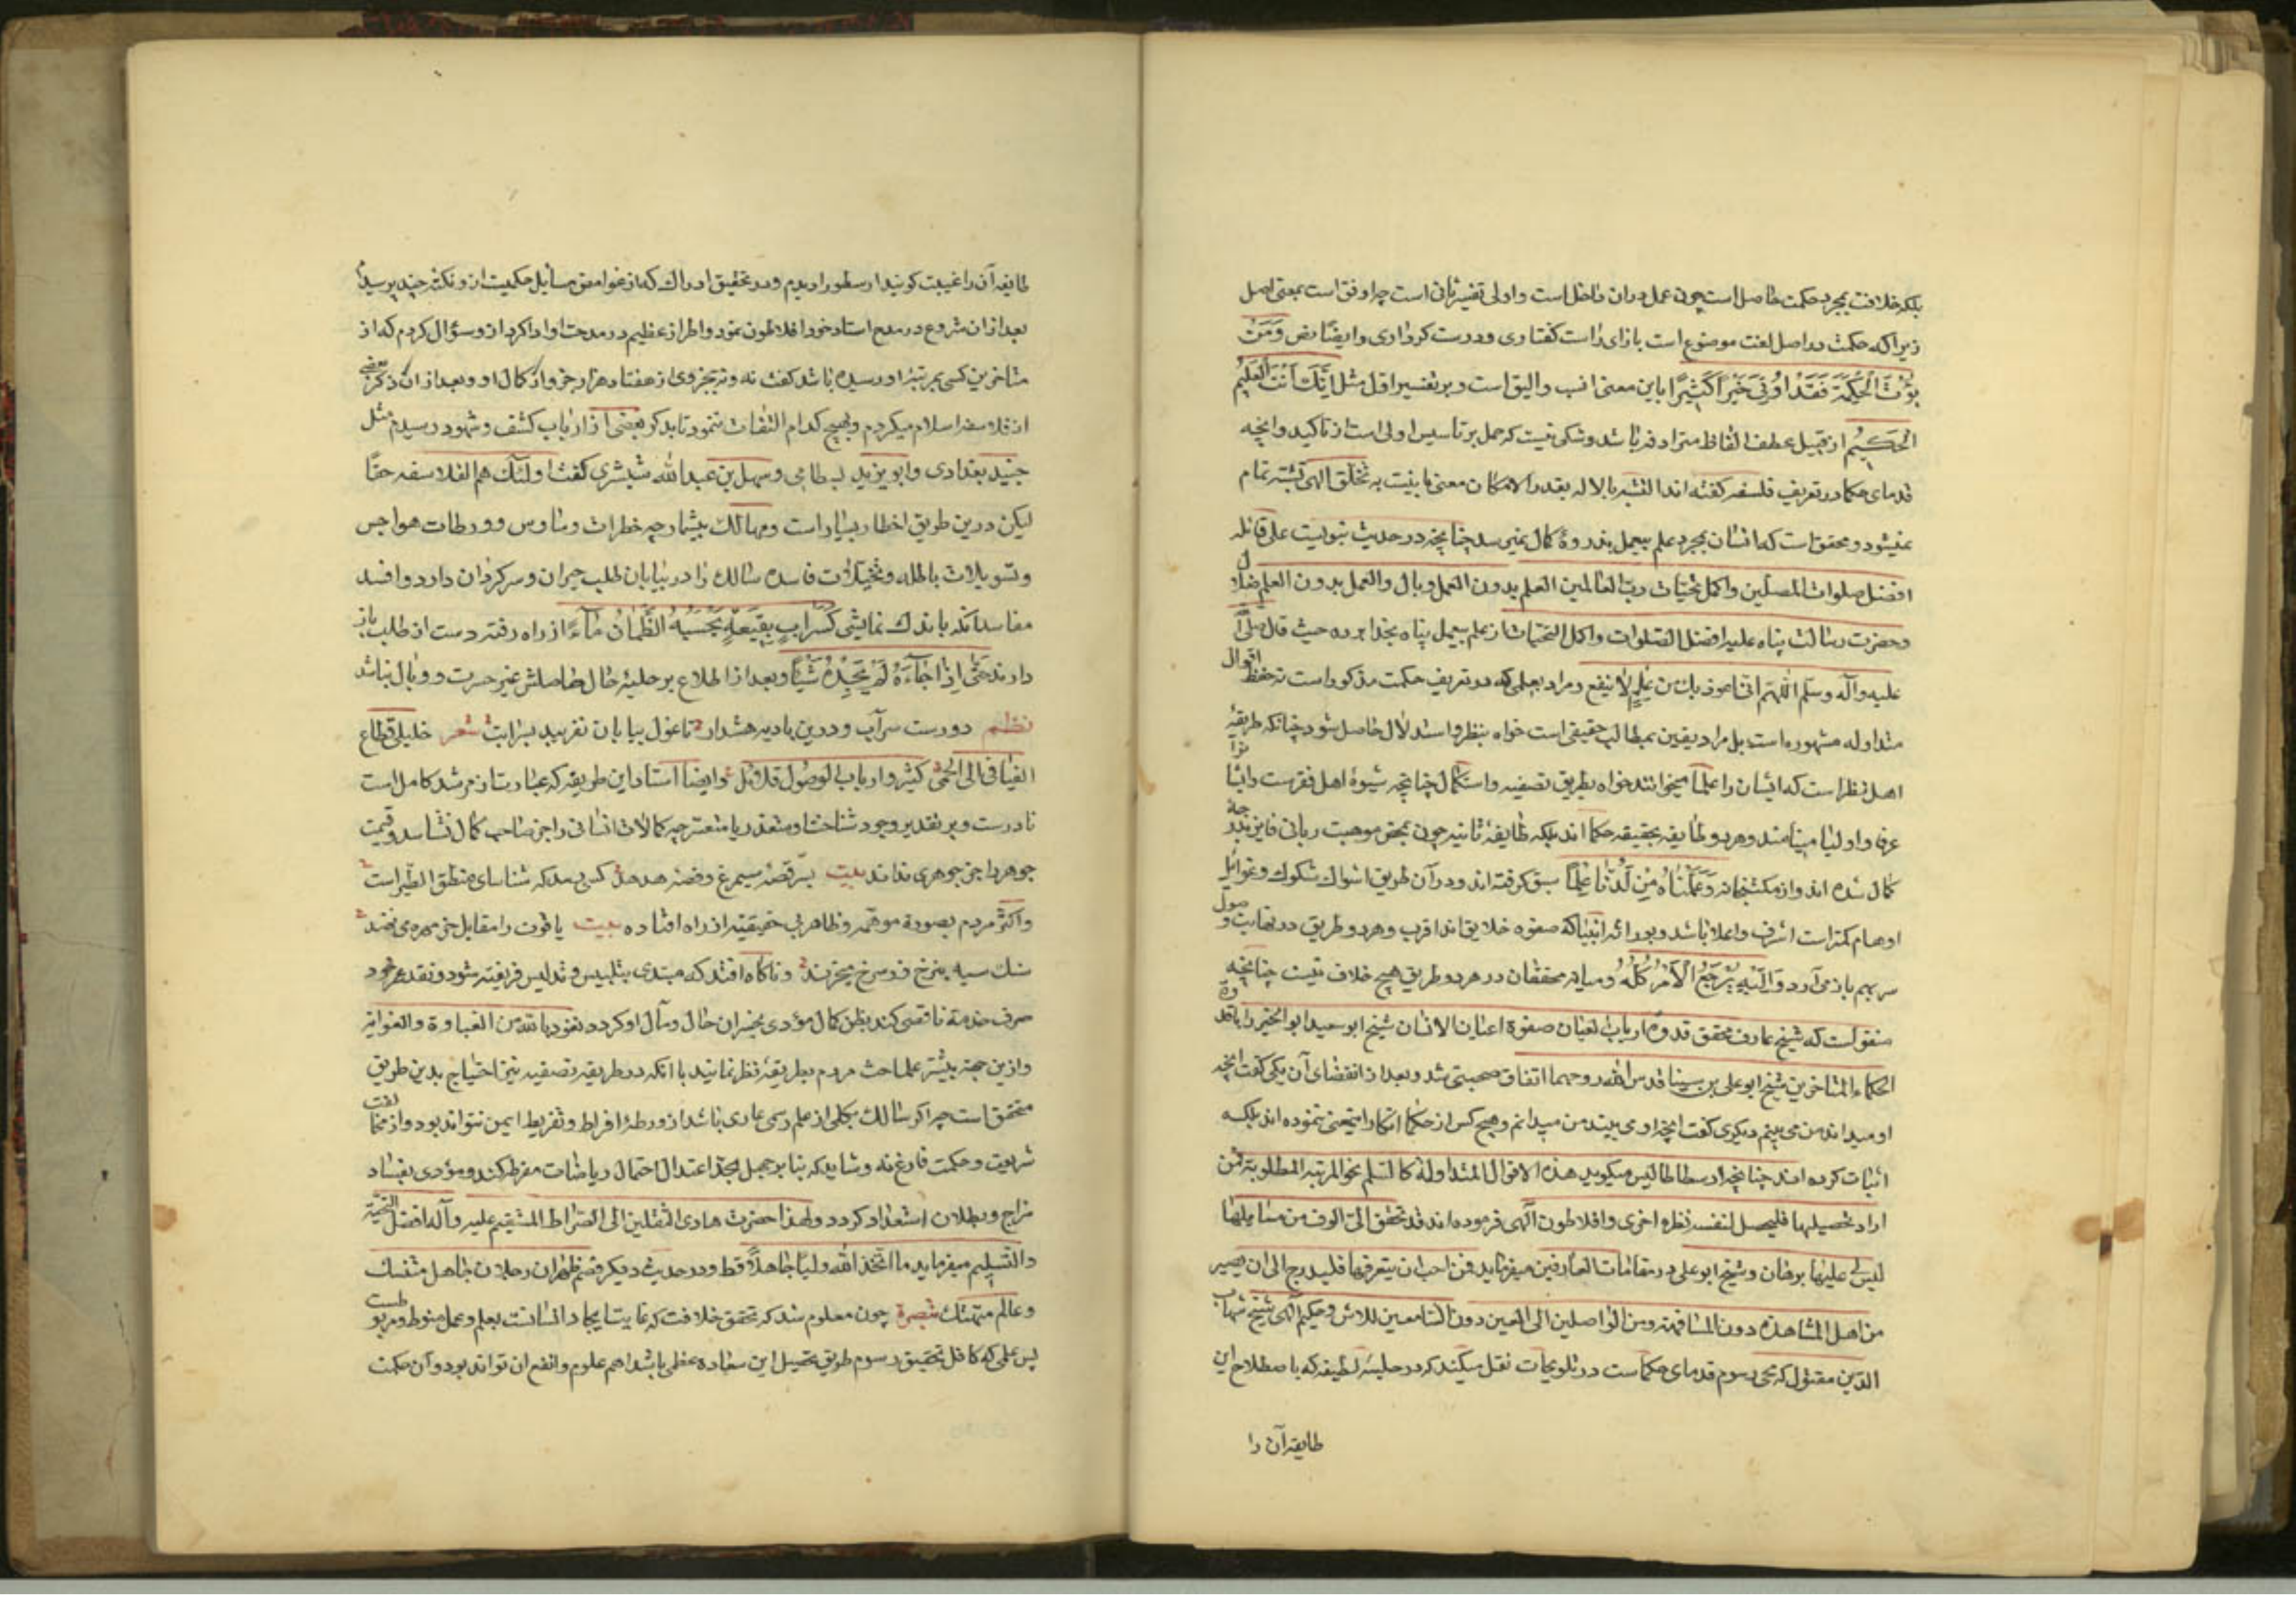 بلکه خلافت بمجرد حکمت حاصل است چون عمل دران داخل است و اولی تفسیر ثانی است چه اوفق است بمعنی اصل
زیرا که حکمت در اصل لغت موضوع است بازای راست کفتاری و درست کرداری و ایضا نص وَمَنْ
یُؤْتَ الْحِکْمَةَ فَقَدْ اُوتِیَ خَیْراً کَثِیراً باین معنی انسب و الیق است و بر تفسیر اول مثل اِنَّکَ اَنْتَ الْعَلِیمُ
الْحَکِیمُ از قبیل عطف الفاظ مترادفه باشد و شکی نیست که حمل بر تاسیس اولی است از تاکید و انچه
قدمای حکما در تعریف فلسفه کفته اند التشبه بالاله بقدر الامکان معنی باینست به تخلق الهی تشبه تمام
نمیشود و محقق است که انسان بمجرد علم بیعمل بذروهٔ کمال نمیرسد چنانچه در حدیث نبویست علی قائله
افضل صلوات المصلین و اکمل تحیات رب العالمین العلم بدون العمل وبال والعمل بدون العلم ضلال
و حضرت رسالت پناه علیه افضل الصلوات و اکمل التحیات از علم بیعمل پناه بخدا برده حیث قال صلی الله
علیه وآله وسلم اللهم انی اعوذ بک من علم لا ینفع و مراد بعلمی که در تعریف حکمت مذکور است نه حفظ اقوال
متداوله مشهوره است بل مراد یقین بمطالب حقیقی است خواه بنظر و استدلال حاصل شود چنانکه طریقهٔ
اهل نظر است که ایشان را علما میخوانند خواه بطریق تصفیه و استکمال چنانچه شیوهٔ اهل فقرست و ایشا نرا
عرفا و اولیا مینامند و هر دو طایفه بحقیقه حکما اند بلکه طایفهٔ ثانیه چون بمحض موهبت ربانی فایز بدرجهٔ
کمال شده اند و از مکتبخانه وَعَلَّمْنَاهُ مِنْ لَدُنَّا عِلْماً سبق کرفته اند و در آن طریق اشواک شکوک و غوایل
اوهام کمتر است اشرف و اعلا باشد و بوراثه انبیا که صفوه خلایق اند اقرب و هر دو طریق در نهایت وصول
سر بهم باز می آرد وَاِلَیْهِ یُرْجَعُ الْاَمْرُ کُلُّهُ و میانه محققان در هر دو طریق هیچ خلاف نیست چنانچه
منقولست که شیخ عارف محقق قدوهٔ ارباب العیان صفوهٔ اعیان الانسان شیخ ابو سعید ابو الخیر را با قدوة
الحکماء المتاخرین شیخ ابو علی بن سینا قدس الله روحهما اتفاق صحبتی شد و بعد از انقضای آن یکی کفت انچه
او میداند من می بینم و دیکری کفت انچه او می بیند من میدانم و هیچ کس از حکما انکار این معنی ننموده اند بلکه
اثبات کرده اند چنانچه ارسطاطالیس میکوید هذه الاقوال المتداولة کالسلم نحو المرتبة المطلوبة فمن
اراد تحصیلها فلیحصل لنفسه فطرة اخری و افلاطون الهی فرموده اند قد تحقق الی الوف من مسایلها
لیس لی علیها برهان و شیخ ابو علی در مقامات العارفین میفرماید فمن احب ان یتعرفها فلیدرج الی ان یصیر
من اهل المشاهدة دون المشافهة ومن الواصلین الی العین دون السامعین للاثر و حکیم الهی شیخ شهاب
الدین مقتول که محیی رسوم قدمای حکماست در تلویحات نقل میکند که در خلسهٔ لطیفه که باصطلاح این
طایفه آن را
طایفه آن را غیبت کویند ارسطو را دیدم و در تحقیق ادراک که از غوامض مسایل حکمیت ازو نکته چند پرسیدم
بعد ازان شروع در مدح استاد خود افلاطون نمود و اطراز عظیم در مدحت او ادا کرد ازو سؤال کردم که از
متاخرین کسی بمرتبه او رسیده باشد کفت نه و نه بجزوی از هفتاد هزار جزو از کمال او و بعد ازان ذکر بعضی
از فلاسفه اسلام میکردم و بهیچ کدام التفات ننمود تا بذکر بعضی از ارباب کشف و شهود رسیدم مثل
جنید بغدادی و ابو یزید بسطامی و سهل بن عبدالله تستری کفت اولئک هم الفلاسفه حقا
لیکن درین طریق اخطار بسیار است و مهالک بیشمار چه خطرات وساوس و ورطات هواجس
و تسویلات باطله و تخیلات فاسده سالک را در بیابان طلب حیران و سرکردان دارد و افسد
مفاسد انکه باندک نمایشی کَسَرابٍ بِقِیعَةٍ یَحْسَبُهُ الظَّمْآنُ مَاءً از راه رفته دست از طلب باز
دارند حَتّٰی اِذَا جَاءَهُ لَمْ یَجِدْهُ شَیْئاً و بعد از اطلاع بر جلیهٔ حال حاصلش غیر حسرت و وبال نباشد
نظم دورست سرآب درین بادیه هشدار تا غول بیابان نفریبد بسرابت شعر خلیلی قطاع
الفیافی الی الحمی کثیر و ارباب الوصول قلائل و ایضا استاد این طریقه که عبارتست از مرشد کامل است
نادرست و بر تقدیر وجود شناخت او متعذر یا متعسر چه کمالات انسانی را جز صاحب کمال نشناسد و قیمت
جوهر را جز جوهری نداند بیت بر قصهٔ سیمرغ و قصهٔ هدهد کسی رسد که شناسای منطق الطیر است
و اکثر مردم بصورة مموهه و ظاهر بی حقیقته از راه افتاده بیت یاقوت را مقابل خر مهره می نهند
سنک سیه بنرخ زر سرخ میخرند و ناکاه افتد که مبتدی بتلبیس و تدلیس فریفته شود و نقد عمر خود
صرف خدمة ناقصی کند بظن کمال مؤدی بخسران حال و مآل او کردد نعوذ بالله من الغباوة والغوایة
و ازین جهة بیشتر علما حث مردم بطریقهٔ نظر نمایند با انکه در طریقهٔ تصفیه نیز احتیاج بدین طریق
متحقق است چه اکر سالک بکلی از علم رسمی عاری باشد از ورطهٔ افراط و تفریط ایمن نتواند بود و از مخالفت
شریعت و حکمت فارغ نه و شاید که بنا بر جهل بحد اعتدال احتمال ریاضات مفرط کند و مؤدی بفساد
مزاج و بطلان استعداد کردد و لهذا حضرت هادی الثقلین الی الصراط المستقیم علیه و آله افضل التحیة
والتسلیم میفرماید ما اتخذ الله ولیا جاهلاً قط و در حدیث دیکر قصم ظهری رجلان جاهل متنسک
و عالم متهتک تبصرة چون معلوم شد که تحقق خلافت که غایت ایجاد انسانست بعلم و عمل منوط و مربوطست
پس علمی که کافل تحقیق رسوم طریق تحصیل این سعاده عظمی باشد اهم علوم و انفع ان تواند بود و آن حکمت